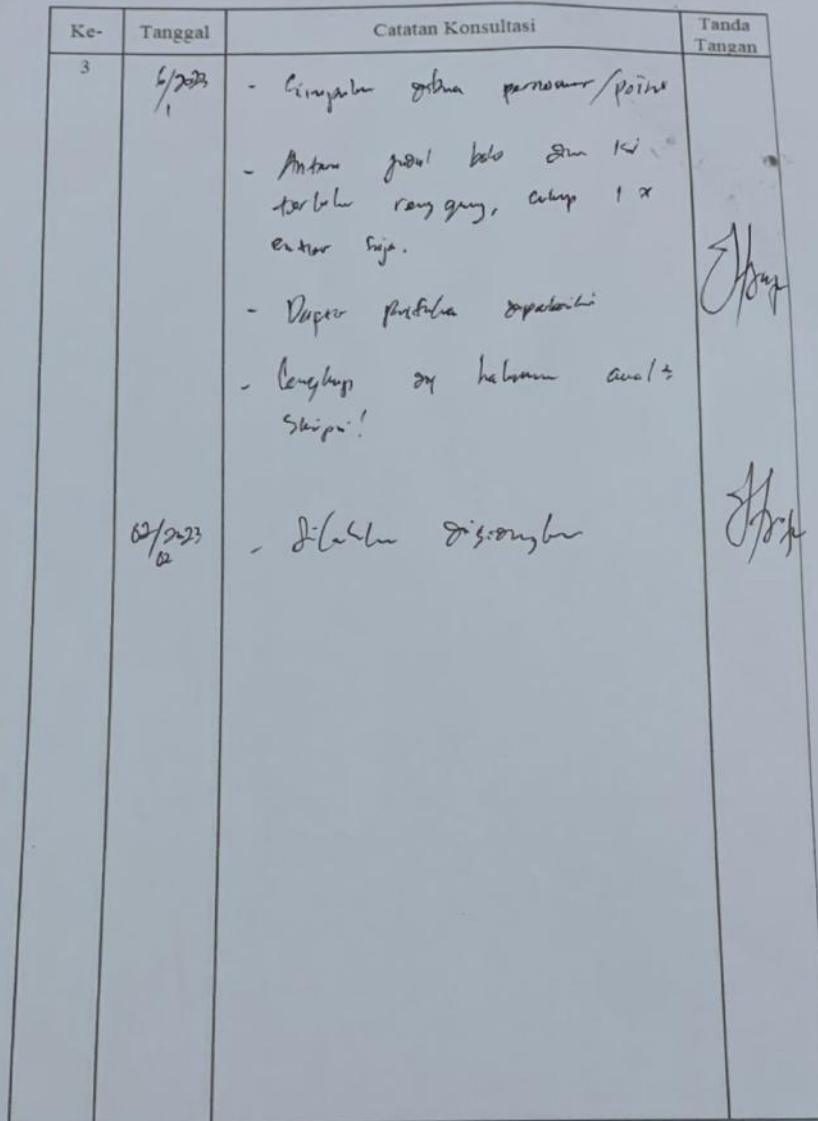 Ke- Tanggal Catatan Konsultasi Tanda Tangan
3 6/2023
1
- dibuat /point
- Antara judul dan isi
terlalu renggang, cukup 1 x
enter saja.
- Daftar pustaka diperbaiki
- Lengkapi dg halaman awal²
Skripsi!
02/2023
02
- Silahkan disidangkan